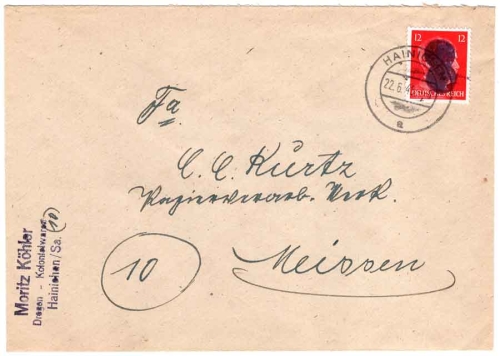 12 12
DEUTSCHES REICH
HAINICHEN
22.6.
a
Fa
C. C. Kurtz
Papierverarb. Werk.
10
Meissen
Moritz Köhler
Drogen - Kolonialwaren
Hainichen/Sa. (10)